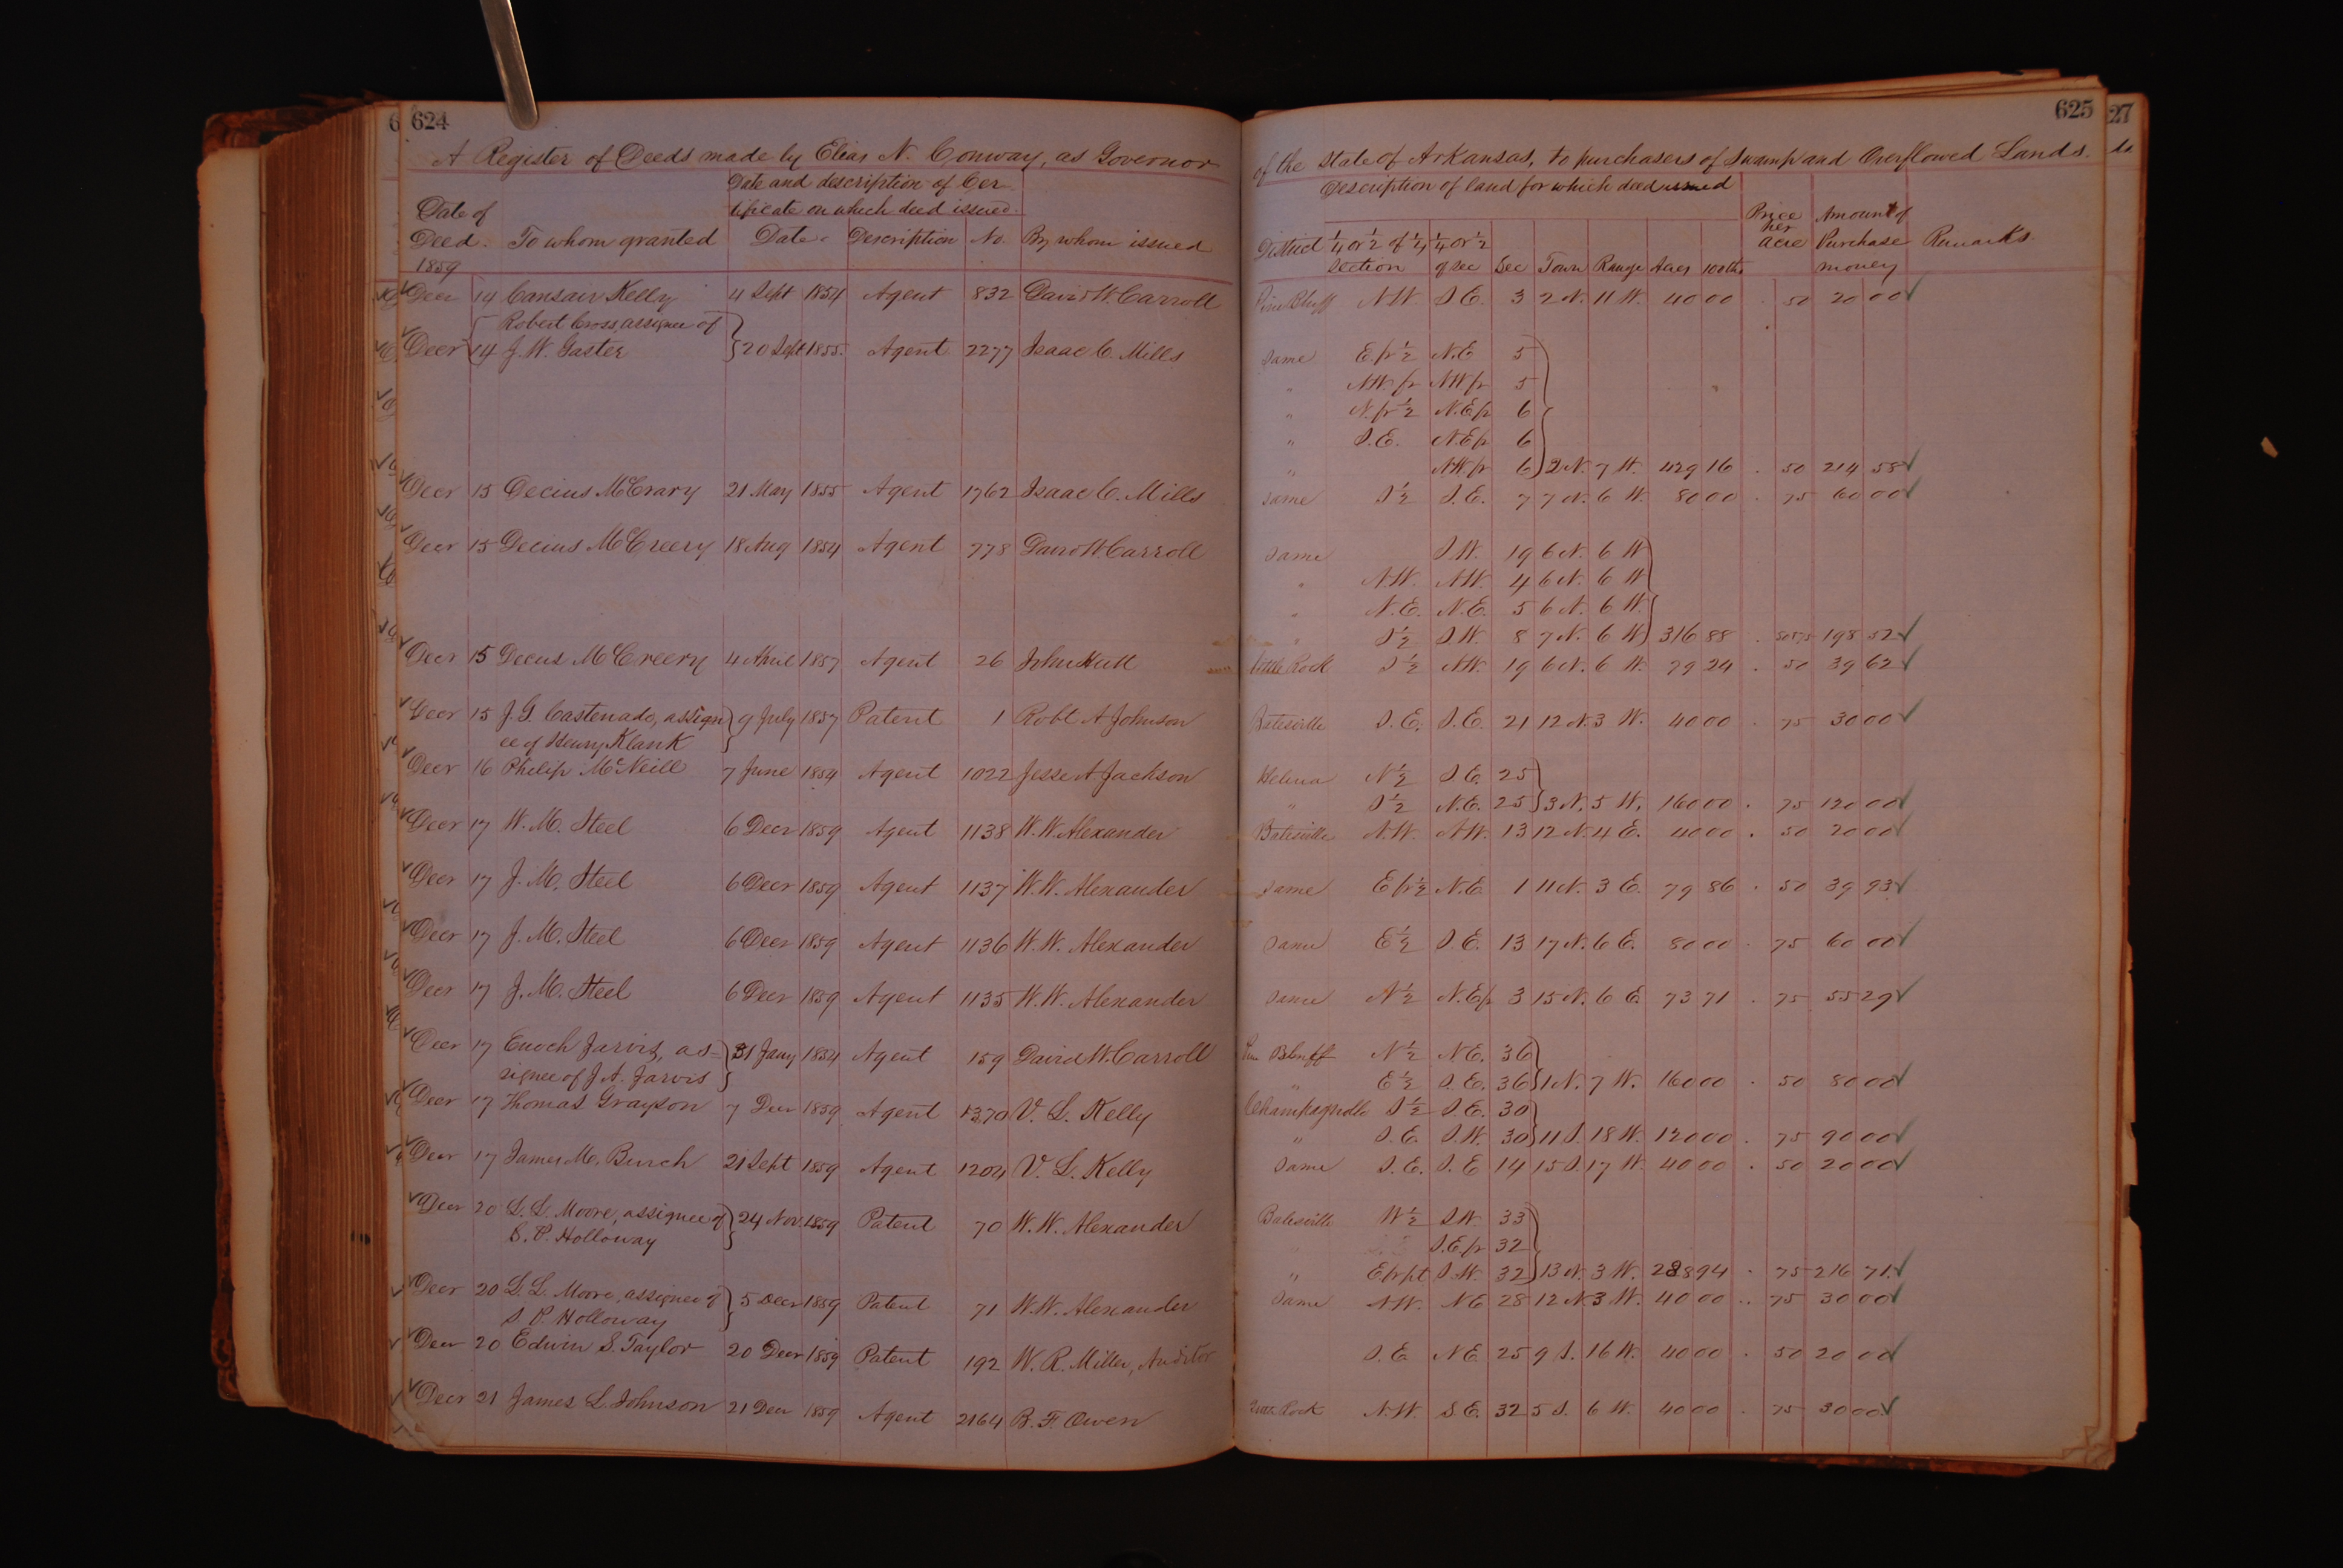 624
A Register of Deeds made by Elias N. Conway, as Governor
Date and description of Cer-
tificate on which deed issued.
Date of
Deed. To whom granted Date. Description No. By whom issued
1859
Decr 14 Cansair Kelly 4 Sept 1854 Agent 832 David W. Carroll
Robert Cross, assignee of
Decr 14 J. W. Gaster 20 Sept 1855 Agent 2277 Isaac C. Mills
Decr 15 Decius McCrary 21 May 1855 Agent 1762 Isaac C. Mills
Decr 15 Decius McCreery 18 Aug 1854 Agent 778 David W. Carroll
Decr 15 Decus McCreery 4 April 1857 Agent 26 John Hutt
Decr 15 J. G. Castenado, assign 9 July 1857 Patent 1 Robt A Johnson
ee of Henry Klank
Decr 16 Philip McNeill 7 June 1854 Agent 1022 Jesse A Jackson
Decr 17 W. M. Steel 6 Decr 1859 Agent 1138 W. W. Alexander
Decr 17 J. M. Steel 6 Decr 1859 Agent 1137 W. W. Alexander
Decr 17 J. M. Steel 6 Decr 1859 Agent 1136 W. W. Alexander
Decr 17 J. M. Steel 6 Decr 1859 Agent 1135 W. W. Alexander
Decr 17 Enoch Jarvis, as- 31 Jany 1854 Agent 159 David W. Carroll
signee of J. A. Jarvis
Decr 17 Thomas Grayson 7 Decr 1859 Agent 1370 V. L. Kelly
Decr 17 James M. Burch 21 Sept 1859 Agent 1204 V. L. Kelly
Decr 20 L. L. Moore, assignee of 24 Nov. 1859 Patent 70 W. W. Alexander
S. P. Holloway
Decr 20 L. L. Moore, assignee of 5 Decr 1859 Patent 71 W. W. Alexander
S. P. Holloway
Decr 20 Edwin S. Taylor 20 Decr 1859 Patent 192 W. R. Miller, Auditor
Decr 21 James L. Johnson 21 Decr 1859 Agent 2164 B. F. Owen
625
27
of the state of Arkansas, to purchasers of Swamp and Overflowed Lands.
Description of land for which deed issued
Price per acre Amount of Purchase money Remarks.
District ¼ or ½ of ¼ section ¼ or ½ of sec Sec Town Range Acres 100ths
Pine Bluff N.W. S.E. 3 2 N. 11 W. 40 00 . 50 20 00
Same E. fr ½ N.E 5
" N.W. fr N.W fr 5
" N. fr ½ N.E fr 6
" S.E. N.E fr 6
" N.W fr 6 2 N. 7 W. 429 16 . 50 214 58
Same S ½ S.E. 7 7 N. 6 W. 80 00 . 75 60 00
Same S.W. 19 6 N. 6 W
" N.W. N.W. 4 6 N. 6 W
" N.E. N.E. 5 6 N. 6 W.
" S ½ S.W. 8 7 N. 6 W 316 88 . 198 52
Little Rock S ½ N.W. 19 6 N. 6 W. 79 24 . 50 39 62
Batesville S.E. S.E. 21 12 N. 3 W. 40 00 . 75 30 00
Helena N ½ S.E. 25
" S ½ N.E. 25 3 N. 5 W. 160 00 . 75 120 00
Batesville N.W. N.W. 13 12 N. 4 E. 40 00 . 50 20 00
Same E fr ½ N.E 1 11 N. 3 E. 79 86 . 50 39 93
Same E ½ S.E. 13 17 N. 6 E. 80 00 . 75 60 00
Same N ½ N.E fr 3 15 N. 6 E. 73 71 . 75 55 29
Pine Bluff N ½ N.E. 36
" E ½ S.E. 36 1 N. 7 W. 160 00 . 50 80 00
Champagnolle S ½ S.E. 30
" S.E. S.W. 30 11 S. 18 W. 120 00 . 75 90 00
Same S.E. S.E 14 15 S. 17 W. 40 00 . 50 20 00
Batesville W ½ S.W. 33
S.E fr 32
" E fr pt S.W. 32 13 N. 3 W. 288 94 . 75 216 71
Same N.W. N.E 28 12 N. 3 W. 40 00 . 75 30 00
S.E N.E 25 9 S. 16 W. 40 00 . 50 20 00
Little Rock N.W. S.E. 32 5 S. 6 W. 40 00 . 75 30 00